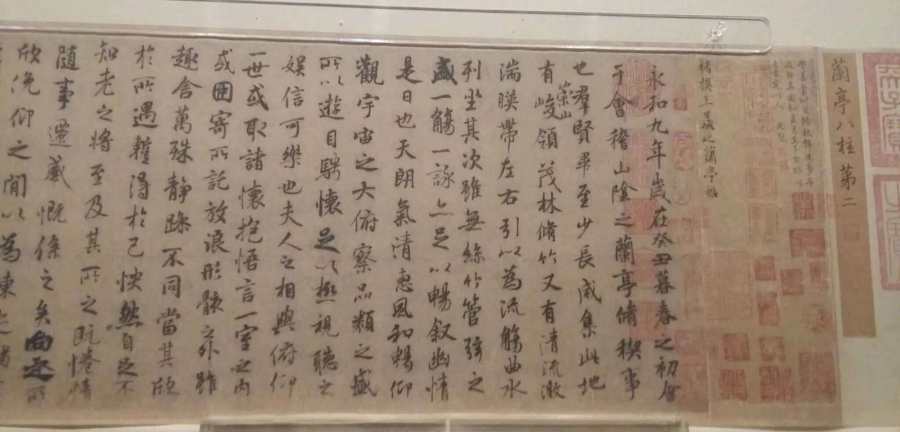 蘭亭八柱第二
褚摸王羲之蘭亭帖
永和九年歲在癸丑暮春之初會
于會稽山陰之蘭亭脩稧事
也羣賢畢至少長咸集此地
有崇山峻領茂林脩竹又有清流激
湍暎帶左右引以為流觴曲水
列坐其次雖無絲竹管弦之
盛一觴一詠亦足以暢叙幽情
是日也天朗氣清惠風和暢仰
觀宇宙之大俯察品類之盛
所以遊目騁懷足以極視聽之
娛信可樂也夫人之相與俯仰
一世或取諸懷抱悟言一室之內
或因寄所託放浪形骸之外雖
趣舍萬殊靜躁不同當其欣
於所遇暫得於己怏然自足不
知老之將至及其所之既惓情
隨事遷感慨係之矣向之所
欣俛仰之閒以為陳之